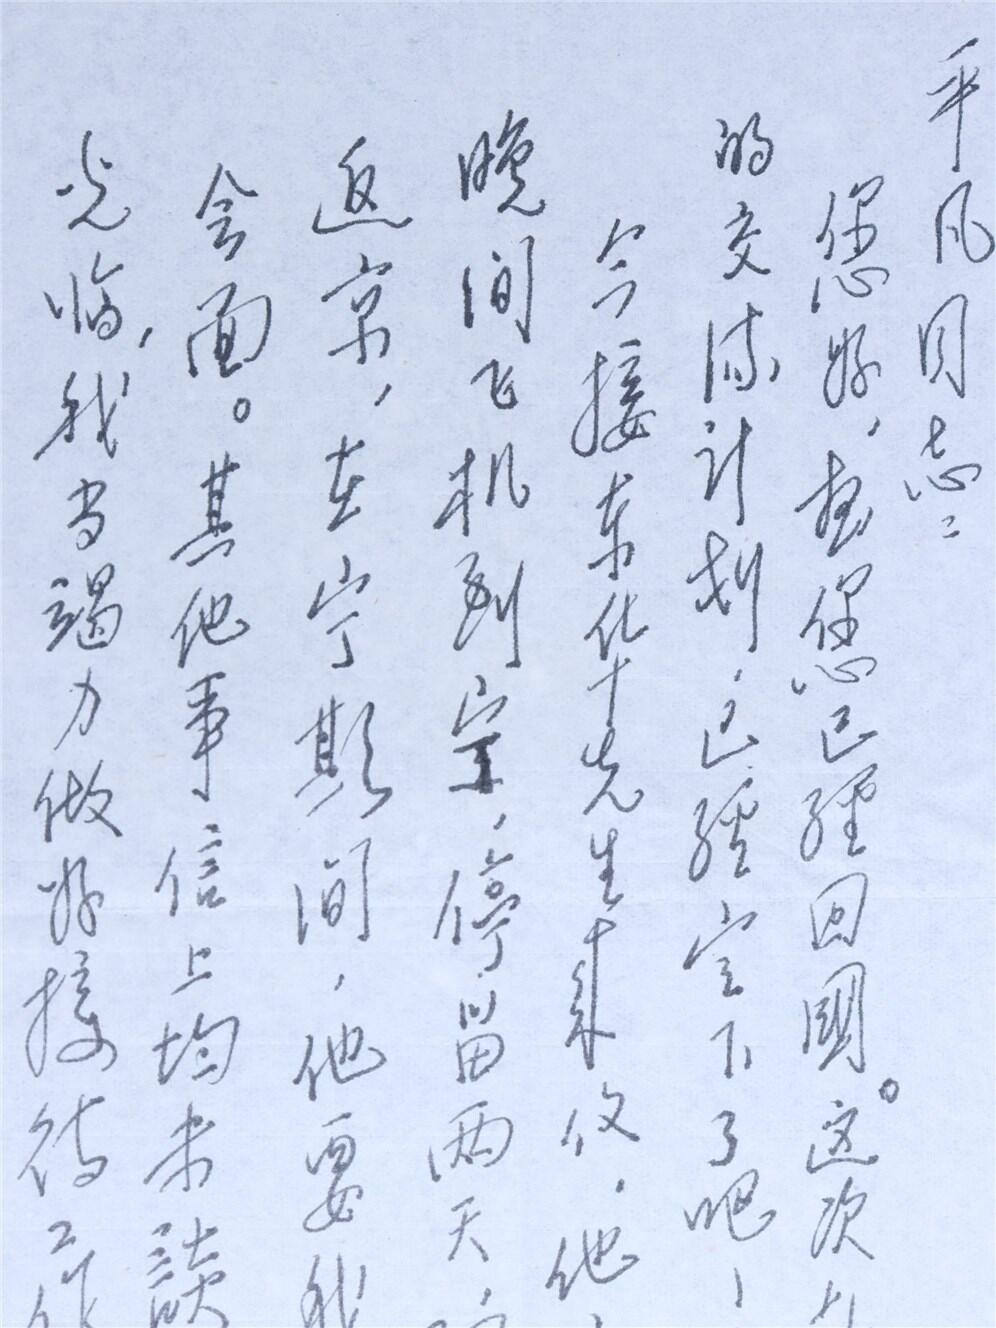 平凡同志:
您好，想您已經回國。这次
的交流计划，已經定下了吧！
今接东化十先生来仪，他
晚间飞机到宁，停留两天，
返京，在宁期间，他要我
会面。其他事信上均未談
光临，我当竭力做好接待工作